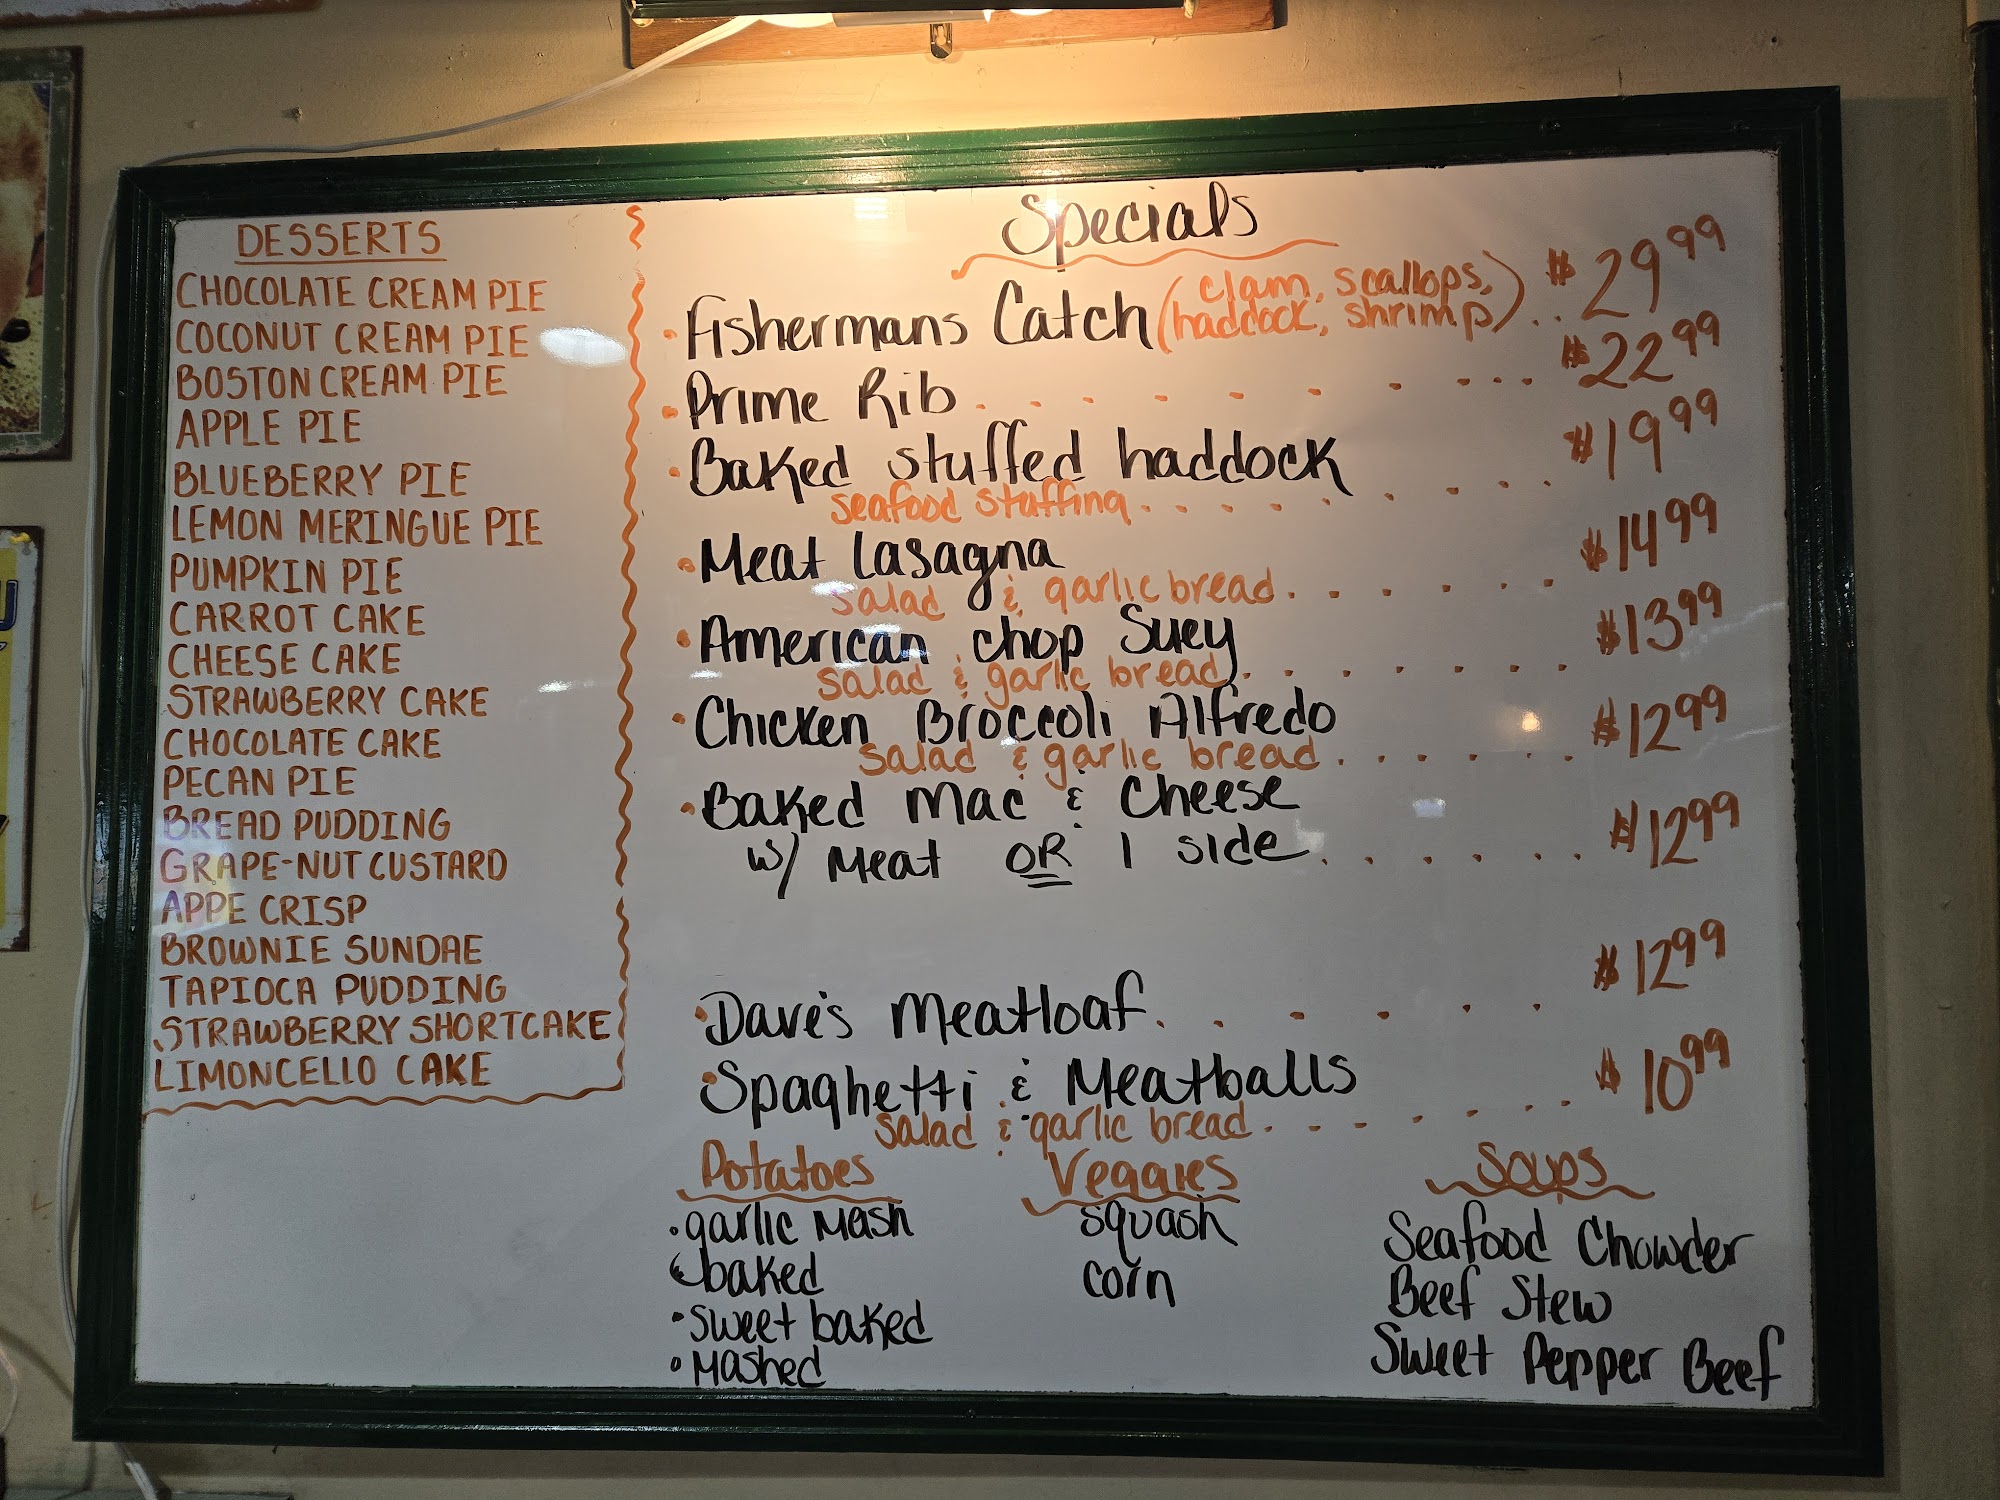 DESSERTS
CHOCOLATE CREAM PIE
COCONUT CREAM PIE
BOSTON CREAM PIE
APPLE PIE
BLUEBERRY PIE
LEMON MERINGUE PIE
PUMPKIN PIE
CARROT CAKE
CHEESE CAKE
STRAWBERRY CAKE
CHOCOLATE CAKE
PECAN PIE
BREAD PUDDING
GRAPE-NUT CUSTARD
APPE CRISP
BROWNIE SUNDAE
TAPIOCA PUDDING
STRAWBERRY SHORTCAKE
LIMONCELLO CAKE
Specials
• Fishermans Catch (clam, scallops, haddock, shrimp) .. $29.99
• Prime Rib . . . . . . . . . $22.99
• Baked stuffed haddock
seafood stuffing . . . . . . . . . $19.99
• Meat Lasagna
salad & garlic bread . . . . . . . $14.99
• American chop Suey
salad & garlic bread . . . . . . . $13.99
• Chicken Broccoli Alfredo
salad & garlic bread . . . . . . . $12.99
• Baked Mac & Cheese
w/ Meat OR 1 side . . . . . . . $12.99
• Dave's Meatloaf . . . . . . . $12.99
• Spaghetti & Meatballs
salad & garlic bread . . . . . . . $10.99
Potatoes
• garlic Mash
• baked
• sweet baked
• Mashed
Veggies
squash
corn
Soups
Seafood Chowder
Beef Stew
Sweet Pepper Beef